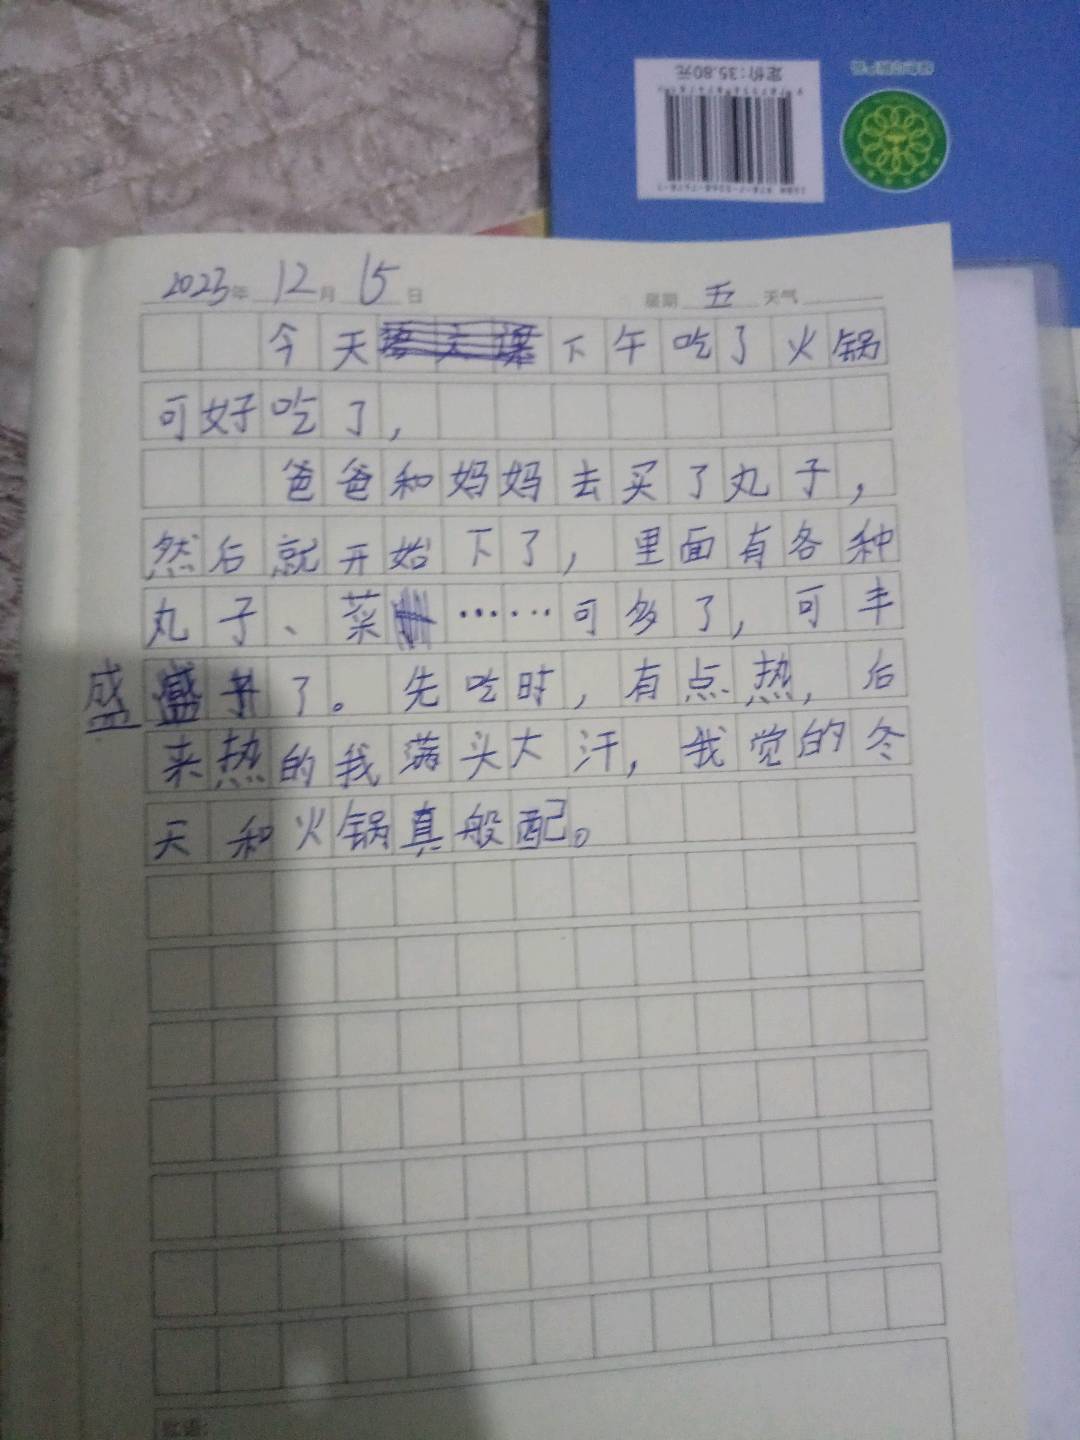 定价:35.80元
2023年 12月 15日 星期 五 天气
今天下午吃了火锅
可好吃了，
爸爸和妈妈去买了丸子，
然后就开始下了，里面有各种
丸子、菜……可多了，可丰
盛了。先吃时，有点热，后
来热的我满头大汗，我觉的冬
天和火锅真般配。